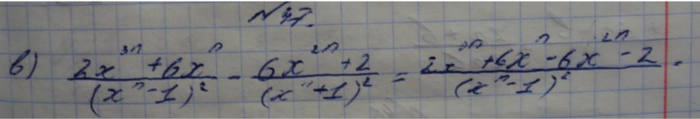 №47.
в) (2x^{3n}+6x^n)/(x^n-1)^2 - (6x^{2n}+2)/(x^n+1)^2 = (2x^{3n}+6x^n-6x^{2n}-2)/(x^n-1)^2.